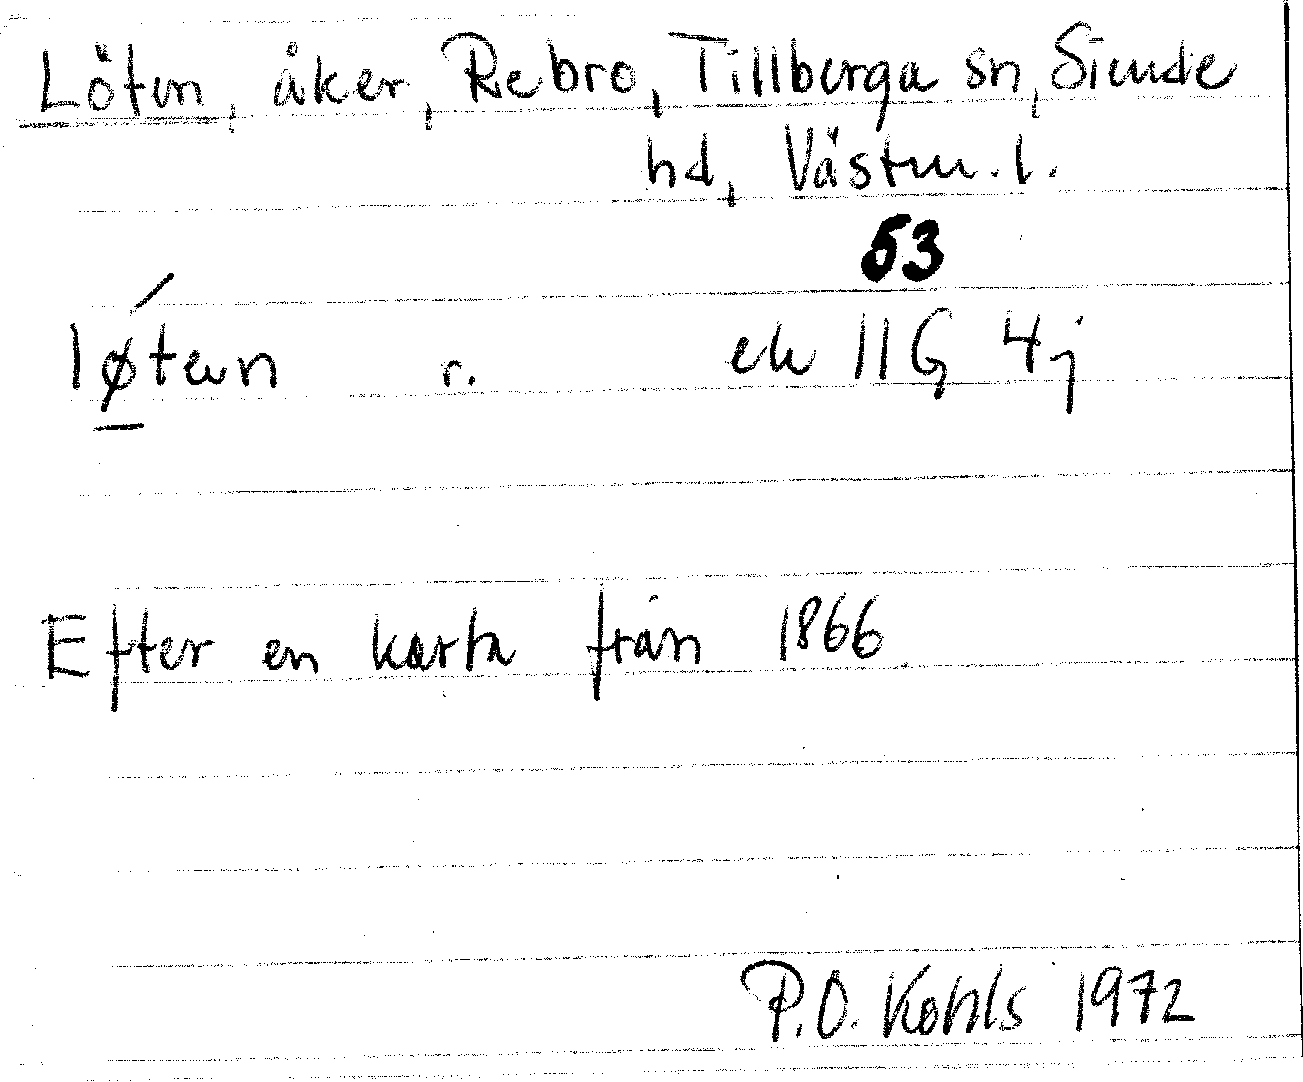 Löten, åker, Rebro, Tillberga sn, Siende
hd, Västm. l.
53
løtæn r. ek 11G 4j
Efter en karta från 1866
P.O. Kohls 1972